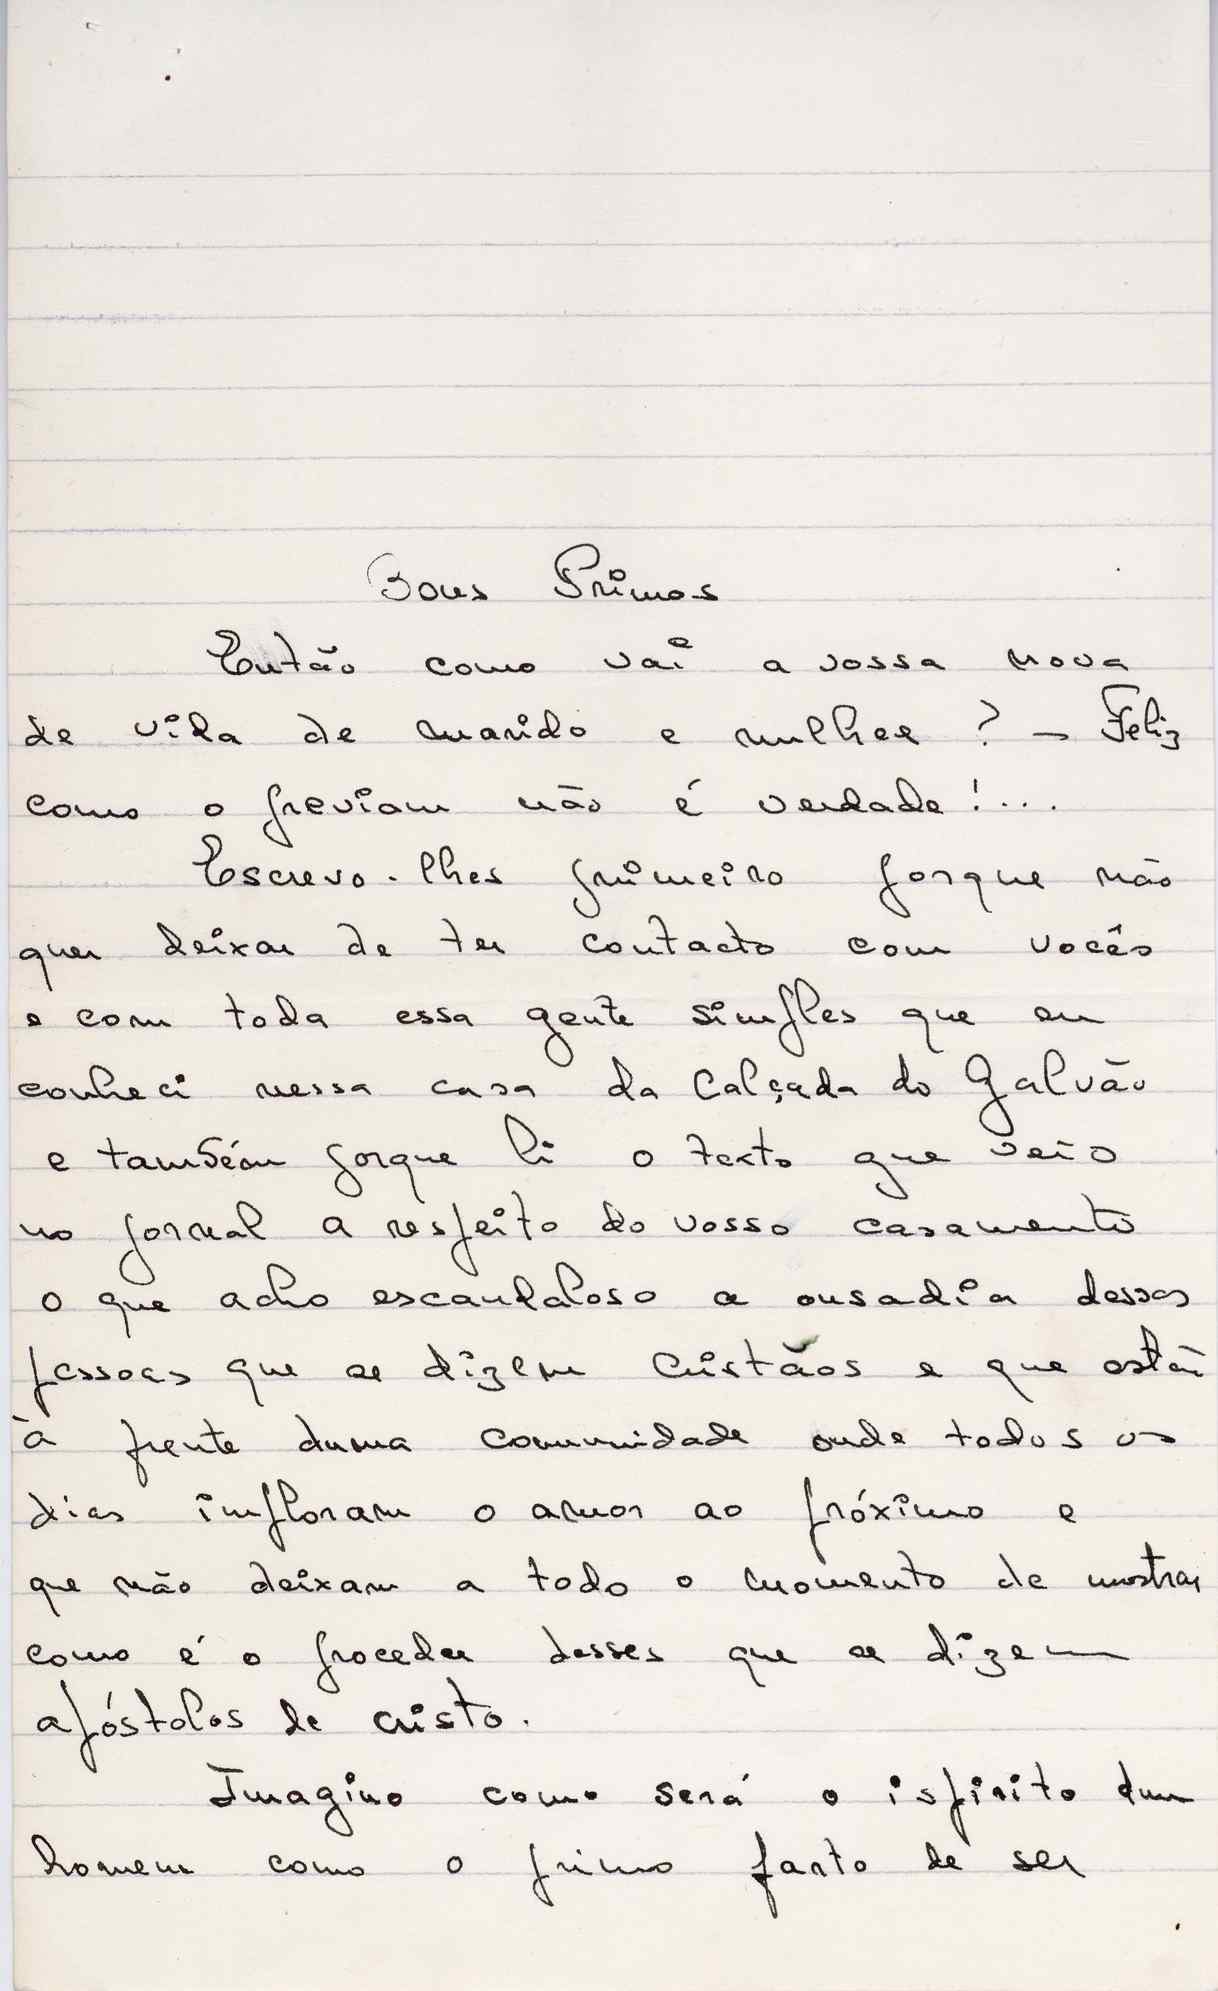 Bons Primos
Então como vai a vossa nova
de vida de marido e mulher? – Feliz
como o previam não é verdade!...
Escrevo-lhes primeiro porque não
quer deixar de ter contacto com vocês
e com toda essa gente simples que eu
conheci nessa casa da Calçada do Galvão
e também porque li o texto que veio
no jornal a respeito do vosso casamento
o que acho escandaloso a ousadia dessas
pessoas que se dizem Cristãos e que estão
à frente duma comunidade onde todos os
dias imploram o amor ao próximo e
que não deixam a todo o momento de mostrar
como é o proceder desses que se dizem
apóstolos de cristo.
Imagino como será o ispirito dum
homem como o primo farto de ser